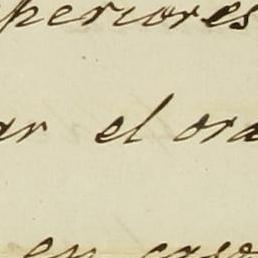 periores
ar el ord
en caso